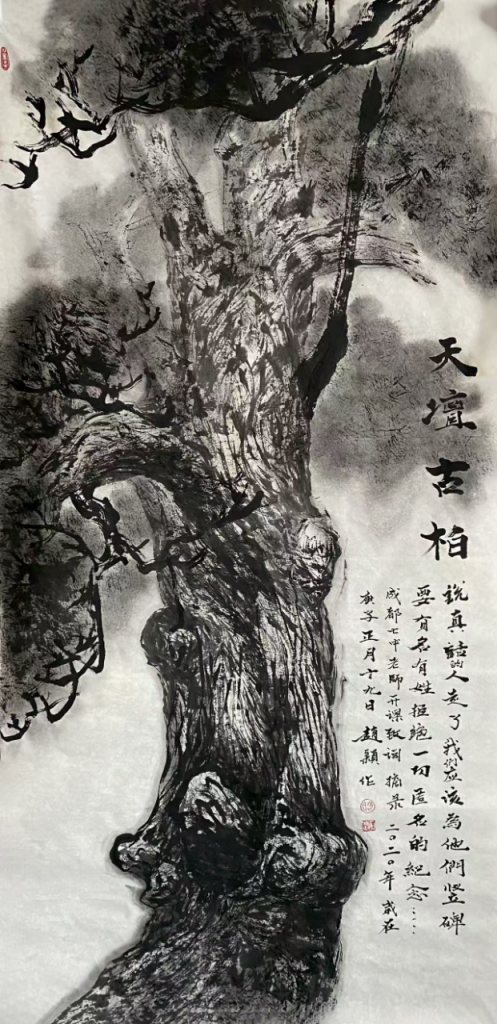 天壇古柏
說真話的人走了我們应该為他們竖碑
要有名有姓拒绝一切匿名的纪念……
成都七中老師开课致词摘录二〇二〇年歲在
庚子正月十九日趙穎作